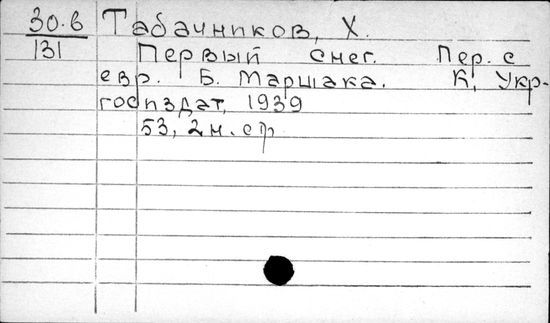 30.6 Табачников, Х.
131 Первый снег. Пер. с
евр. Б. Маршака. К, Укр-
госиздат, 1939
53, 2 н. ср.